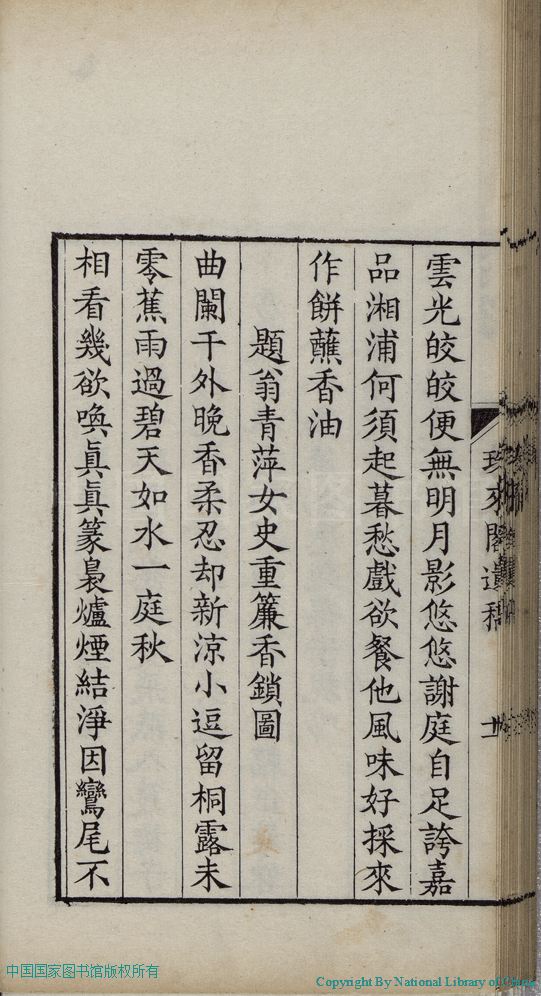 雲光皎皎便無明月影悠悠謝庭自足誇嘉
品湘浦何須起暮愁戲欲餐他風味好採來
作餅蘸香油
題翁青萍女史重簾香鎖圖
曲闌干外晚香柔忍却新涼小逗留桐露未
零蕉雨過碧天如水一庭秋
相看幾欲喚眞眞篆裊爐煙結淨因鸞尾不
來閣遺
中国国家图书馆版权所有
Copyright By National Library of China